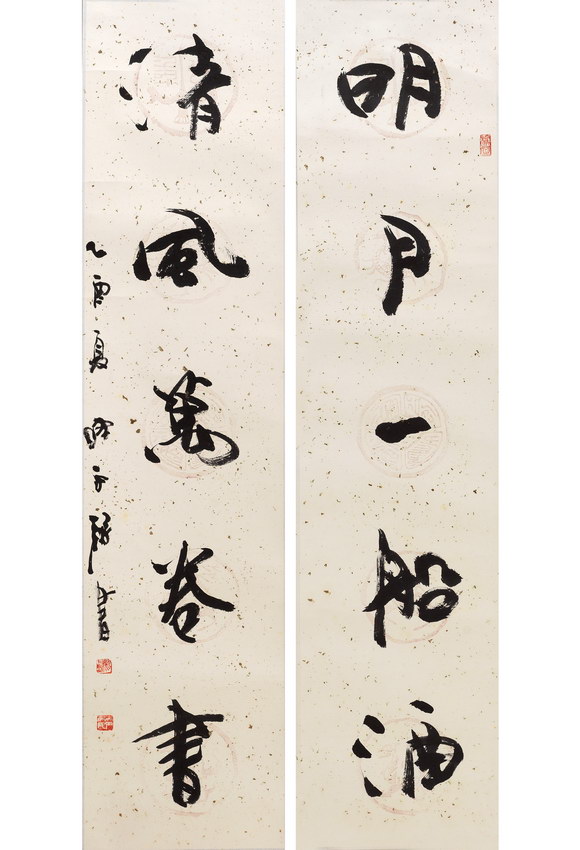 明月一船酒
清風萬卷書
乙酉夏
書